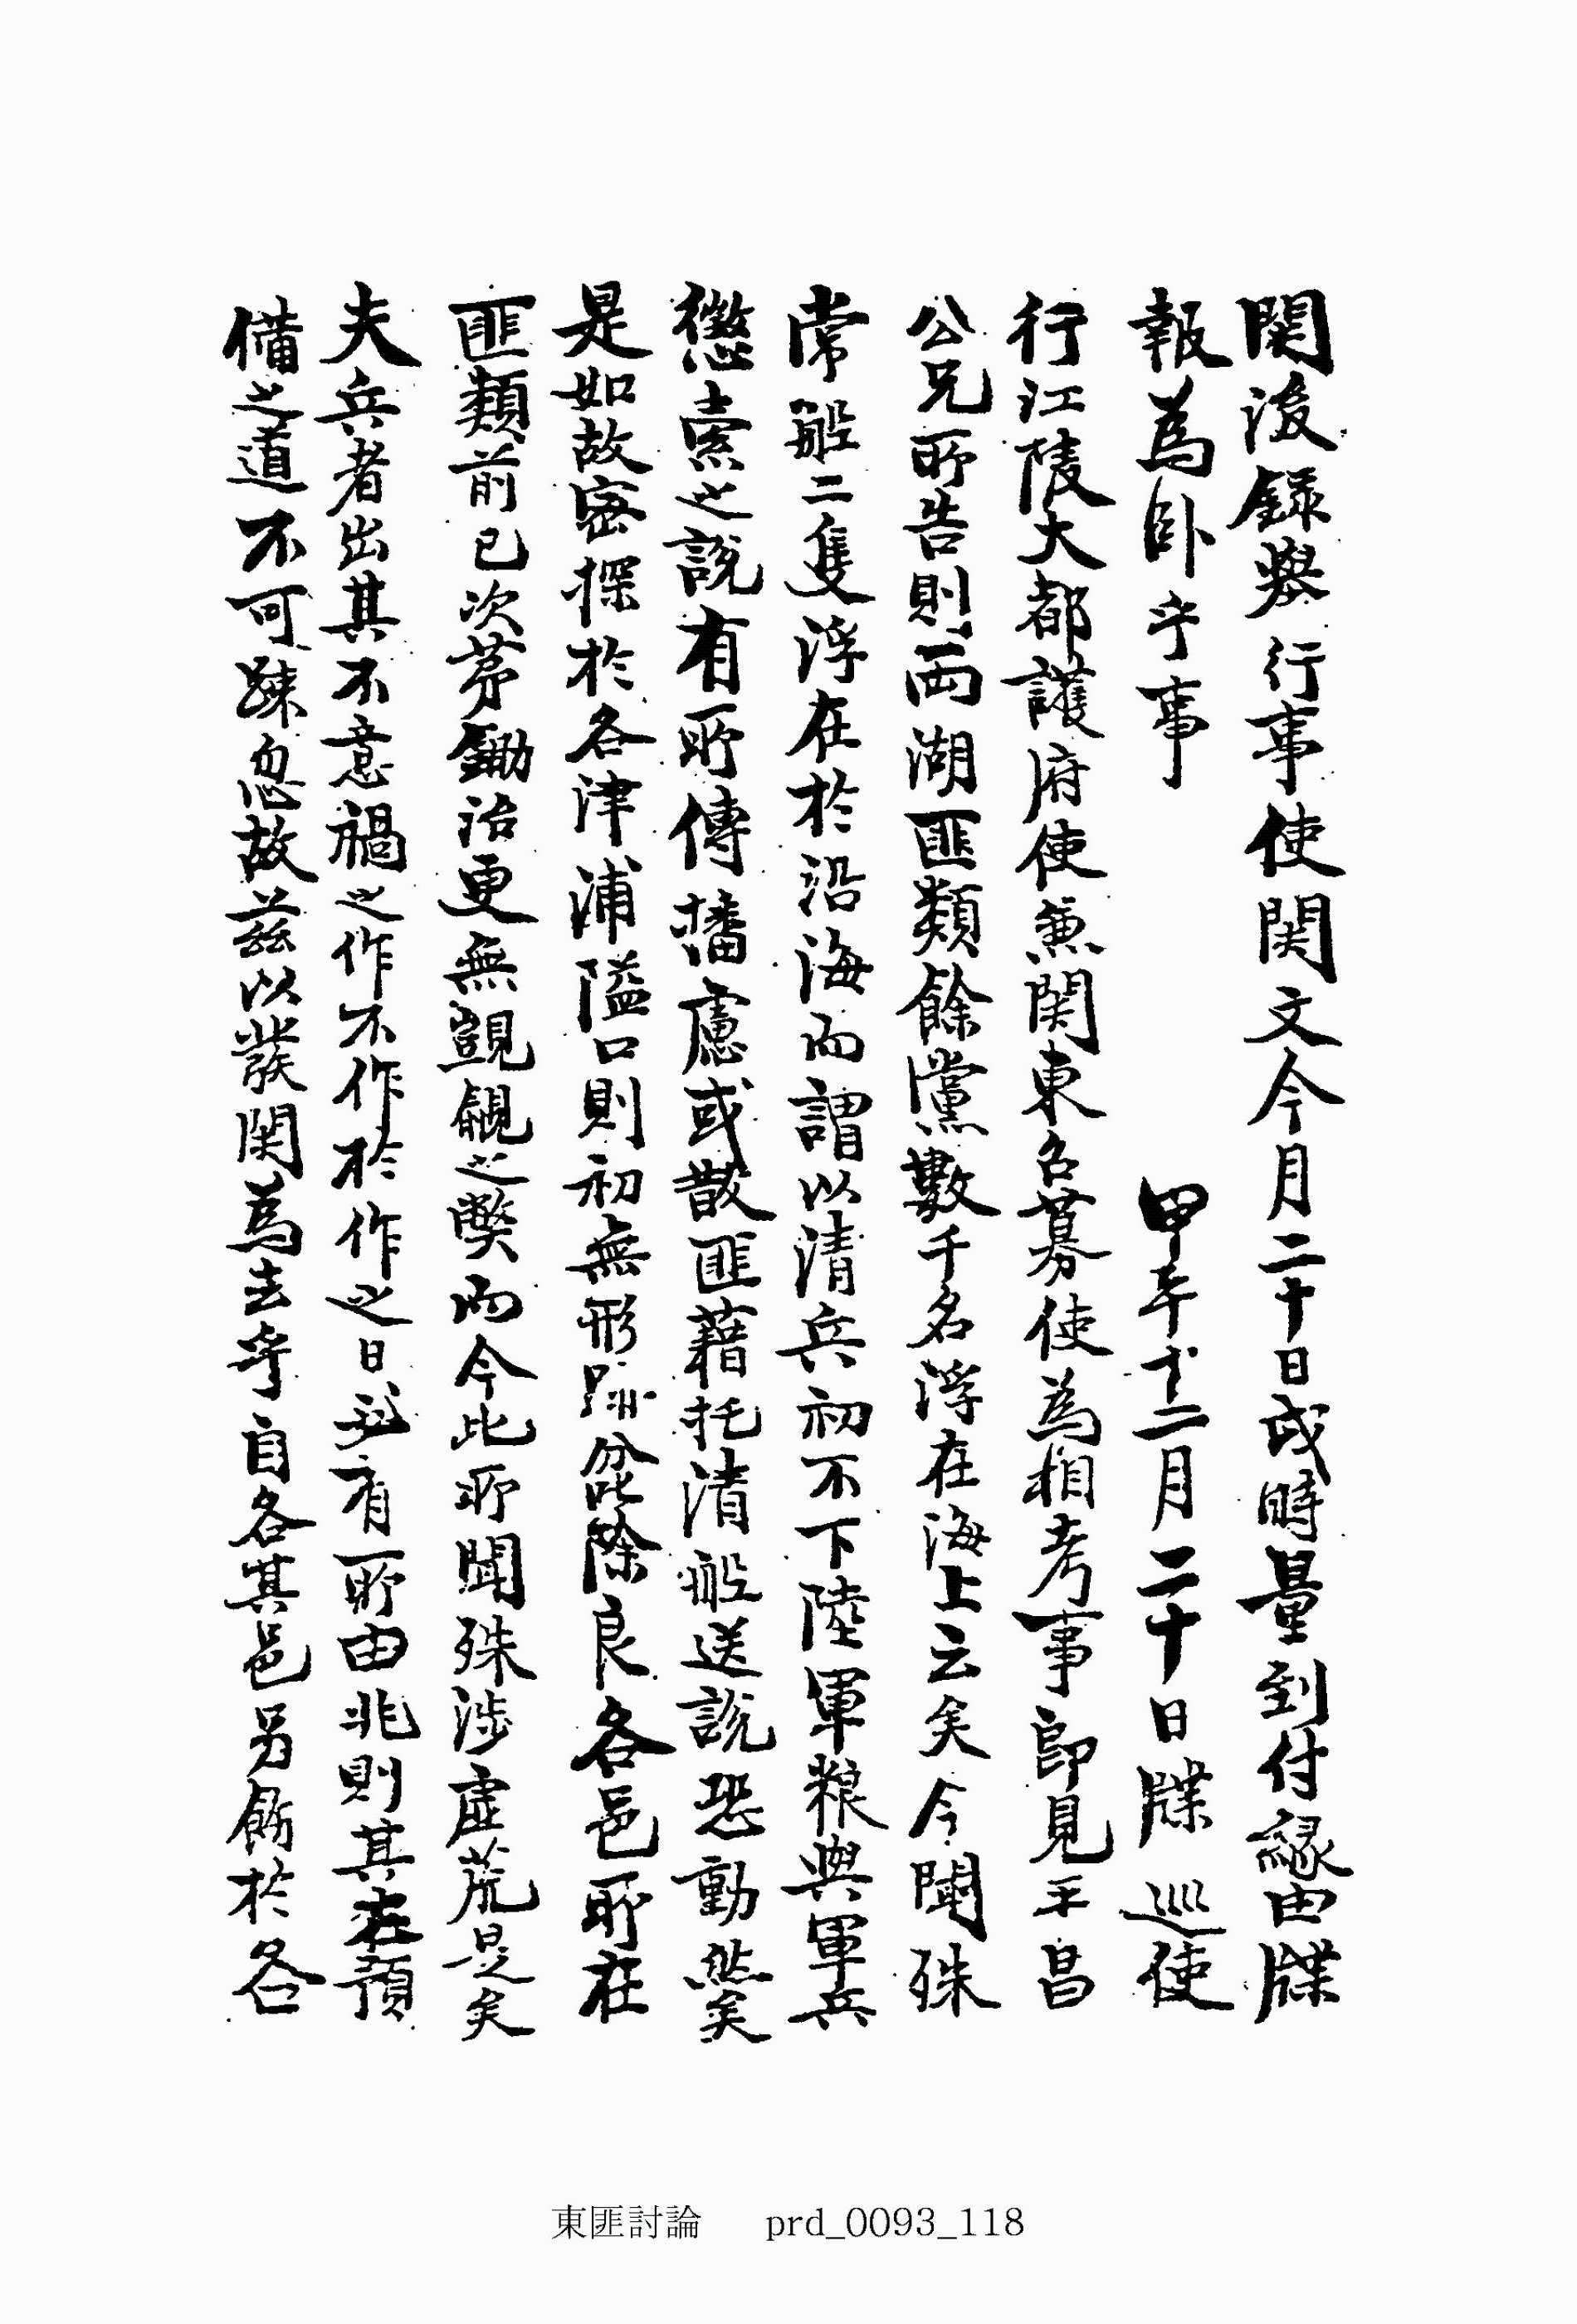 関後錄擧行事使関文今月二十日戌時量到付緣由牒
報爲臥乎事　甲午十二月二十日牒　巡使
行江陵大都護府使兼関東召募使爲相考事卽見平昌
公兄所告則兩湖匪類餘黨數千名浮在海上云矣今聞殊
常船二隻浮在於沿海而謂以清兵初不下陸軍粮與軍兵
懲索之說有所傳播慮或散匪藉托清船送說恐動然矣
是如故密探於各津浦隘口則初無形跡是除良各邑所在
匪類前已次第鋤治更無覬覦之弊而今此所聞殊涉虛荒是矣
夫兵者出其不意禍之作不作於作之日必有所由兆則其在預
備之道不可踈忽故玆以發関爲去乎自各其邑另飭於各
東匪討論　prd_0093_118